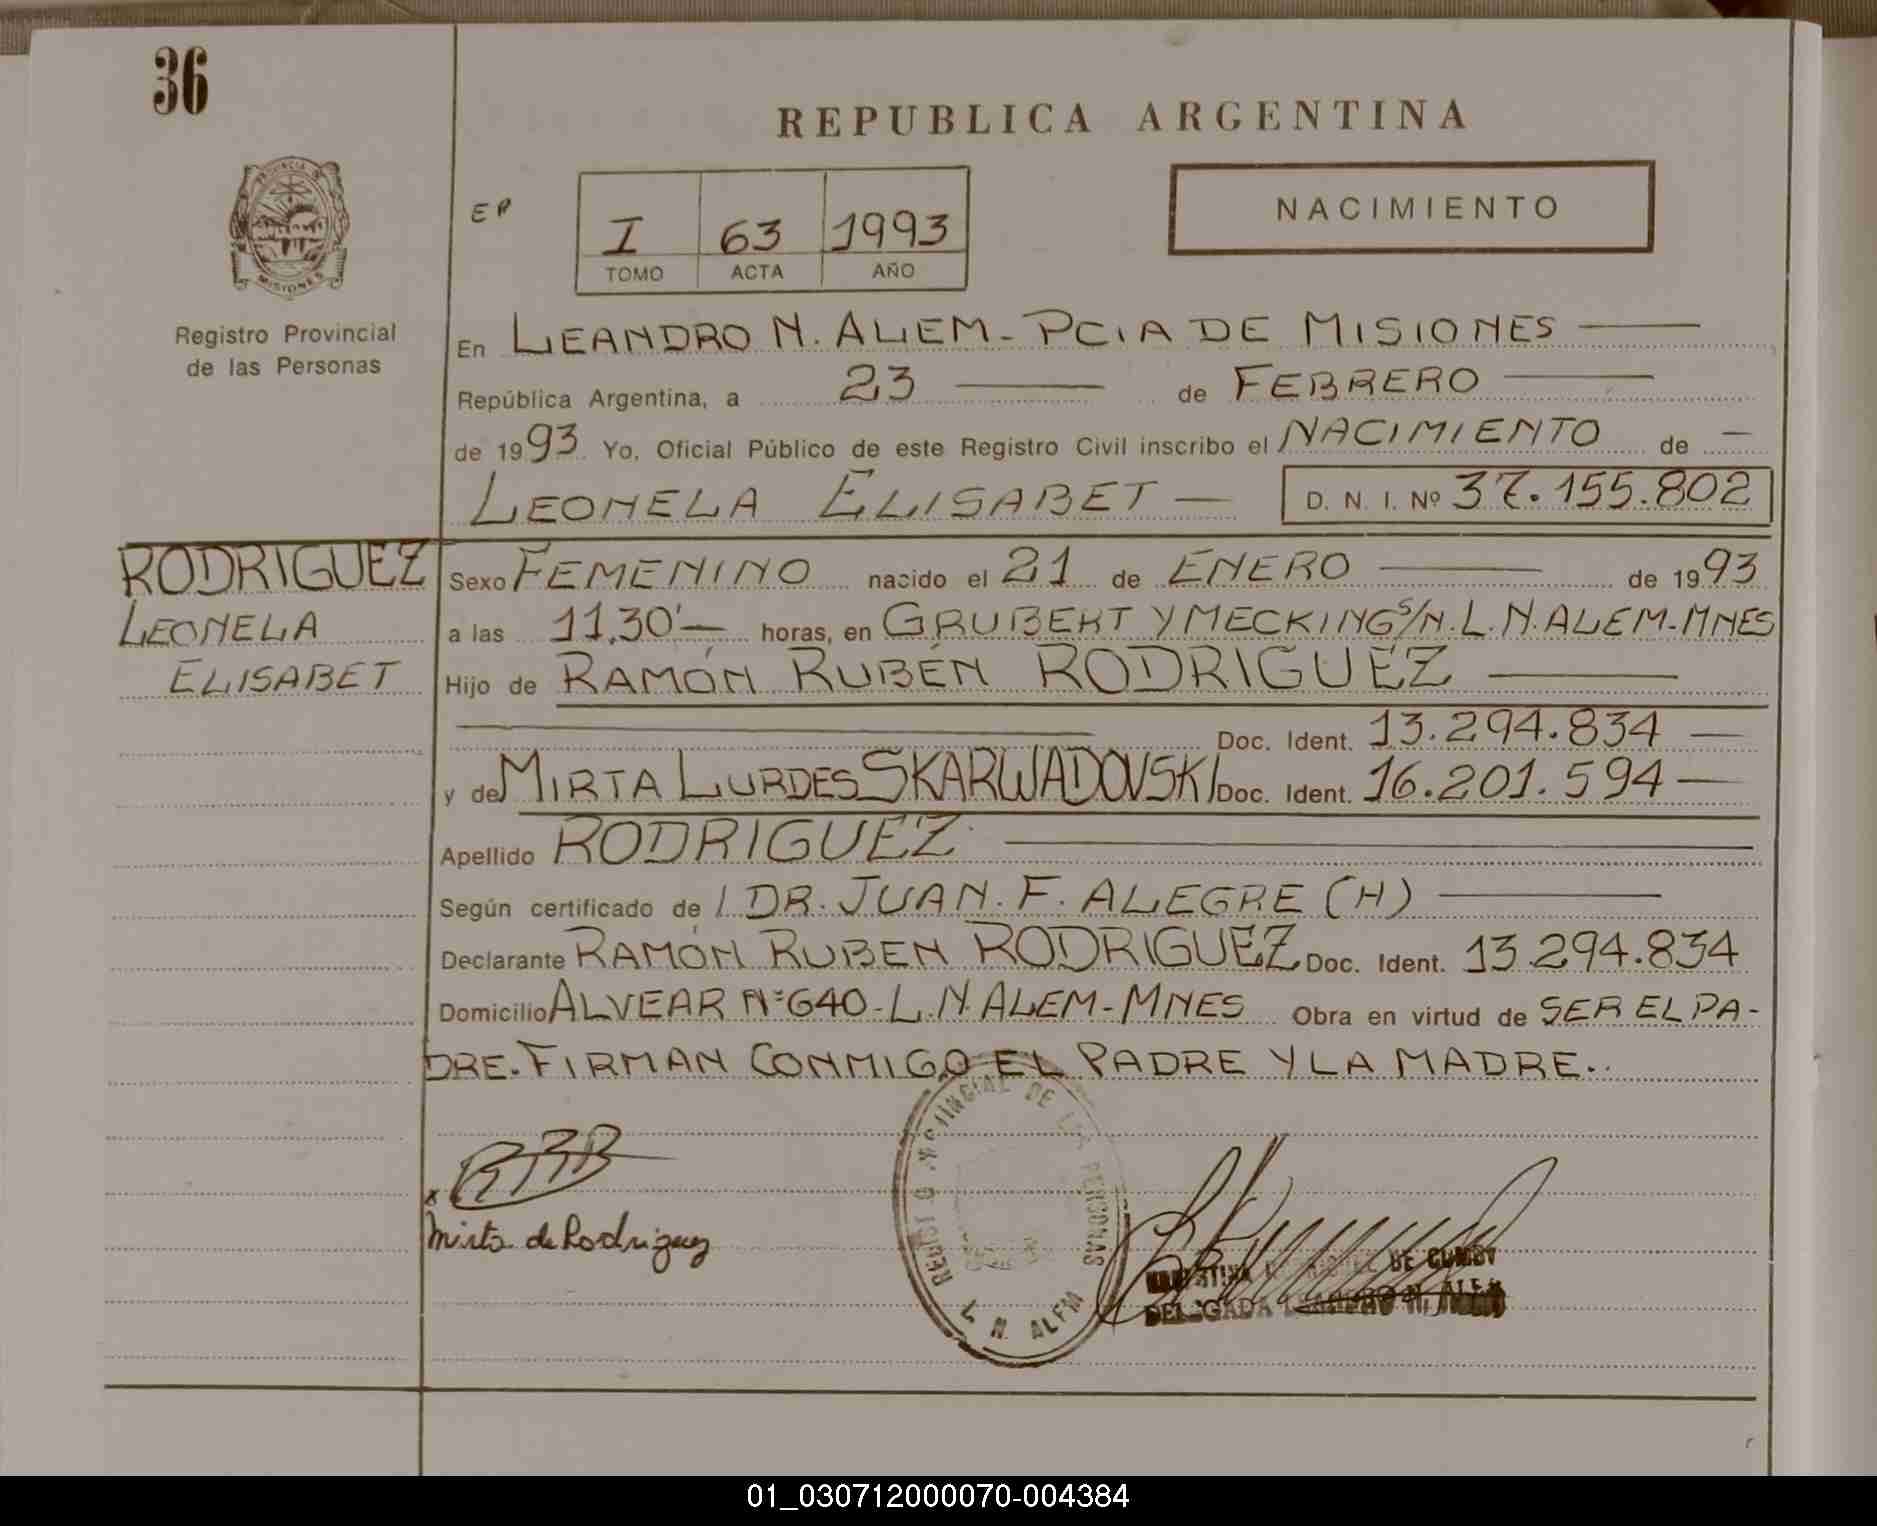 36
REPUBLICA ARGENTINA
PROVINCIA
MISIONES
EP
I 63 1993
TOMO ACTA AÑO
NACIMIENTO
Registro Provincial
de las Personas
En LEANDRO N. ALEM - PCIA DE MISIONES
República Argentina, a 23 de FEBRERO
de 1993 Yo, Oficial Público de este Registro Civil inscribo el NACIMIENTO de
LEONELA ELISABET D. N. I. Nº 37.155.802
RODRIGUEZ
LEONELA
ELISABET
Sexo FEMENINO nacido el 21 de ENERO de 1993
a las 11,30' horas, en GRUBERT Y MECKING S/N. L. N. ALEM - MNES
Hijo de RAMÓN RUBÉN RODRIGUEZ
Doc. Ident. 13.294.834
y de MIRTA LURDES SKARWADOVSKI Doc. Ident. 16.201.594
Apellido RODRIGUEZ
Según certificado de DR. JUAN. F. ALEGRE (H)
Declarante RAMÓN RUBEN RODRIGUEZ Doc. Ident. 13.294.834
Domicilio ALVEAR Nº 640 - L. N. ALEM - MNES Obra en virtud de SER EL PA-
DRE. FIRMAN CONMIGO EL PADRE Y LA MADRE.
Mirta de Rodriguez
DE LAS PERSONAS
L. N. ALEM
DELEGADA LEANDRO N. ALEM
01_030712000070-004384